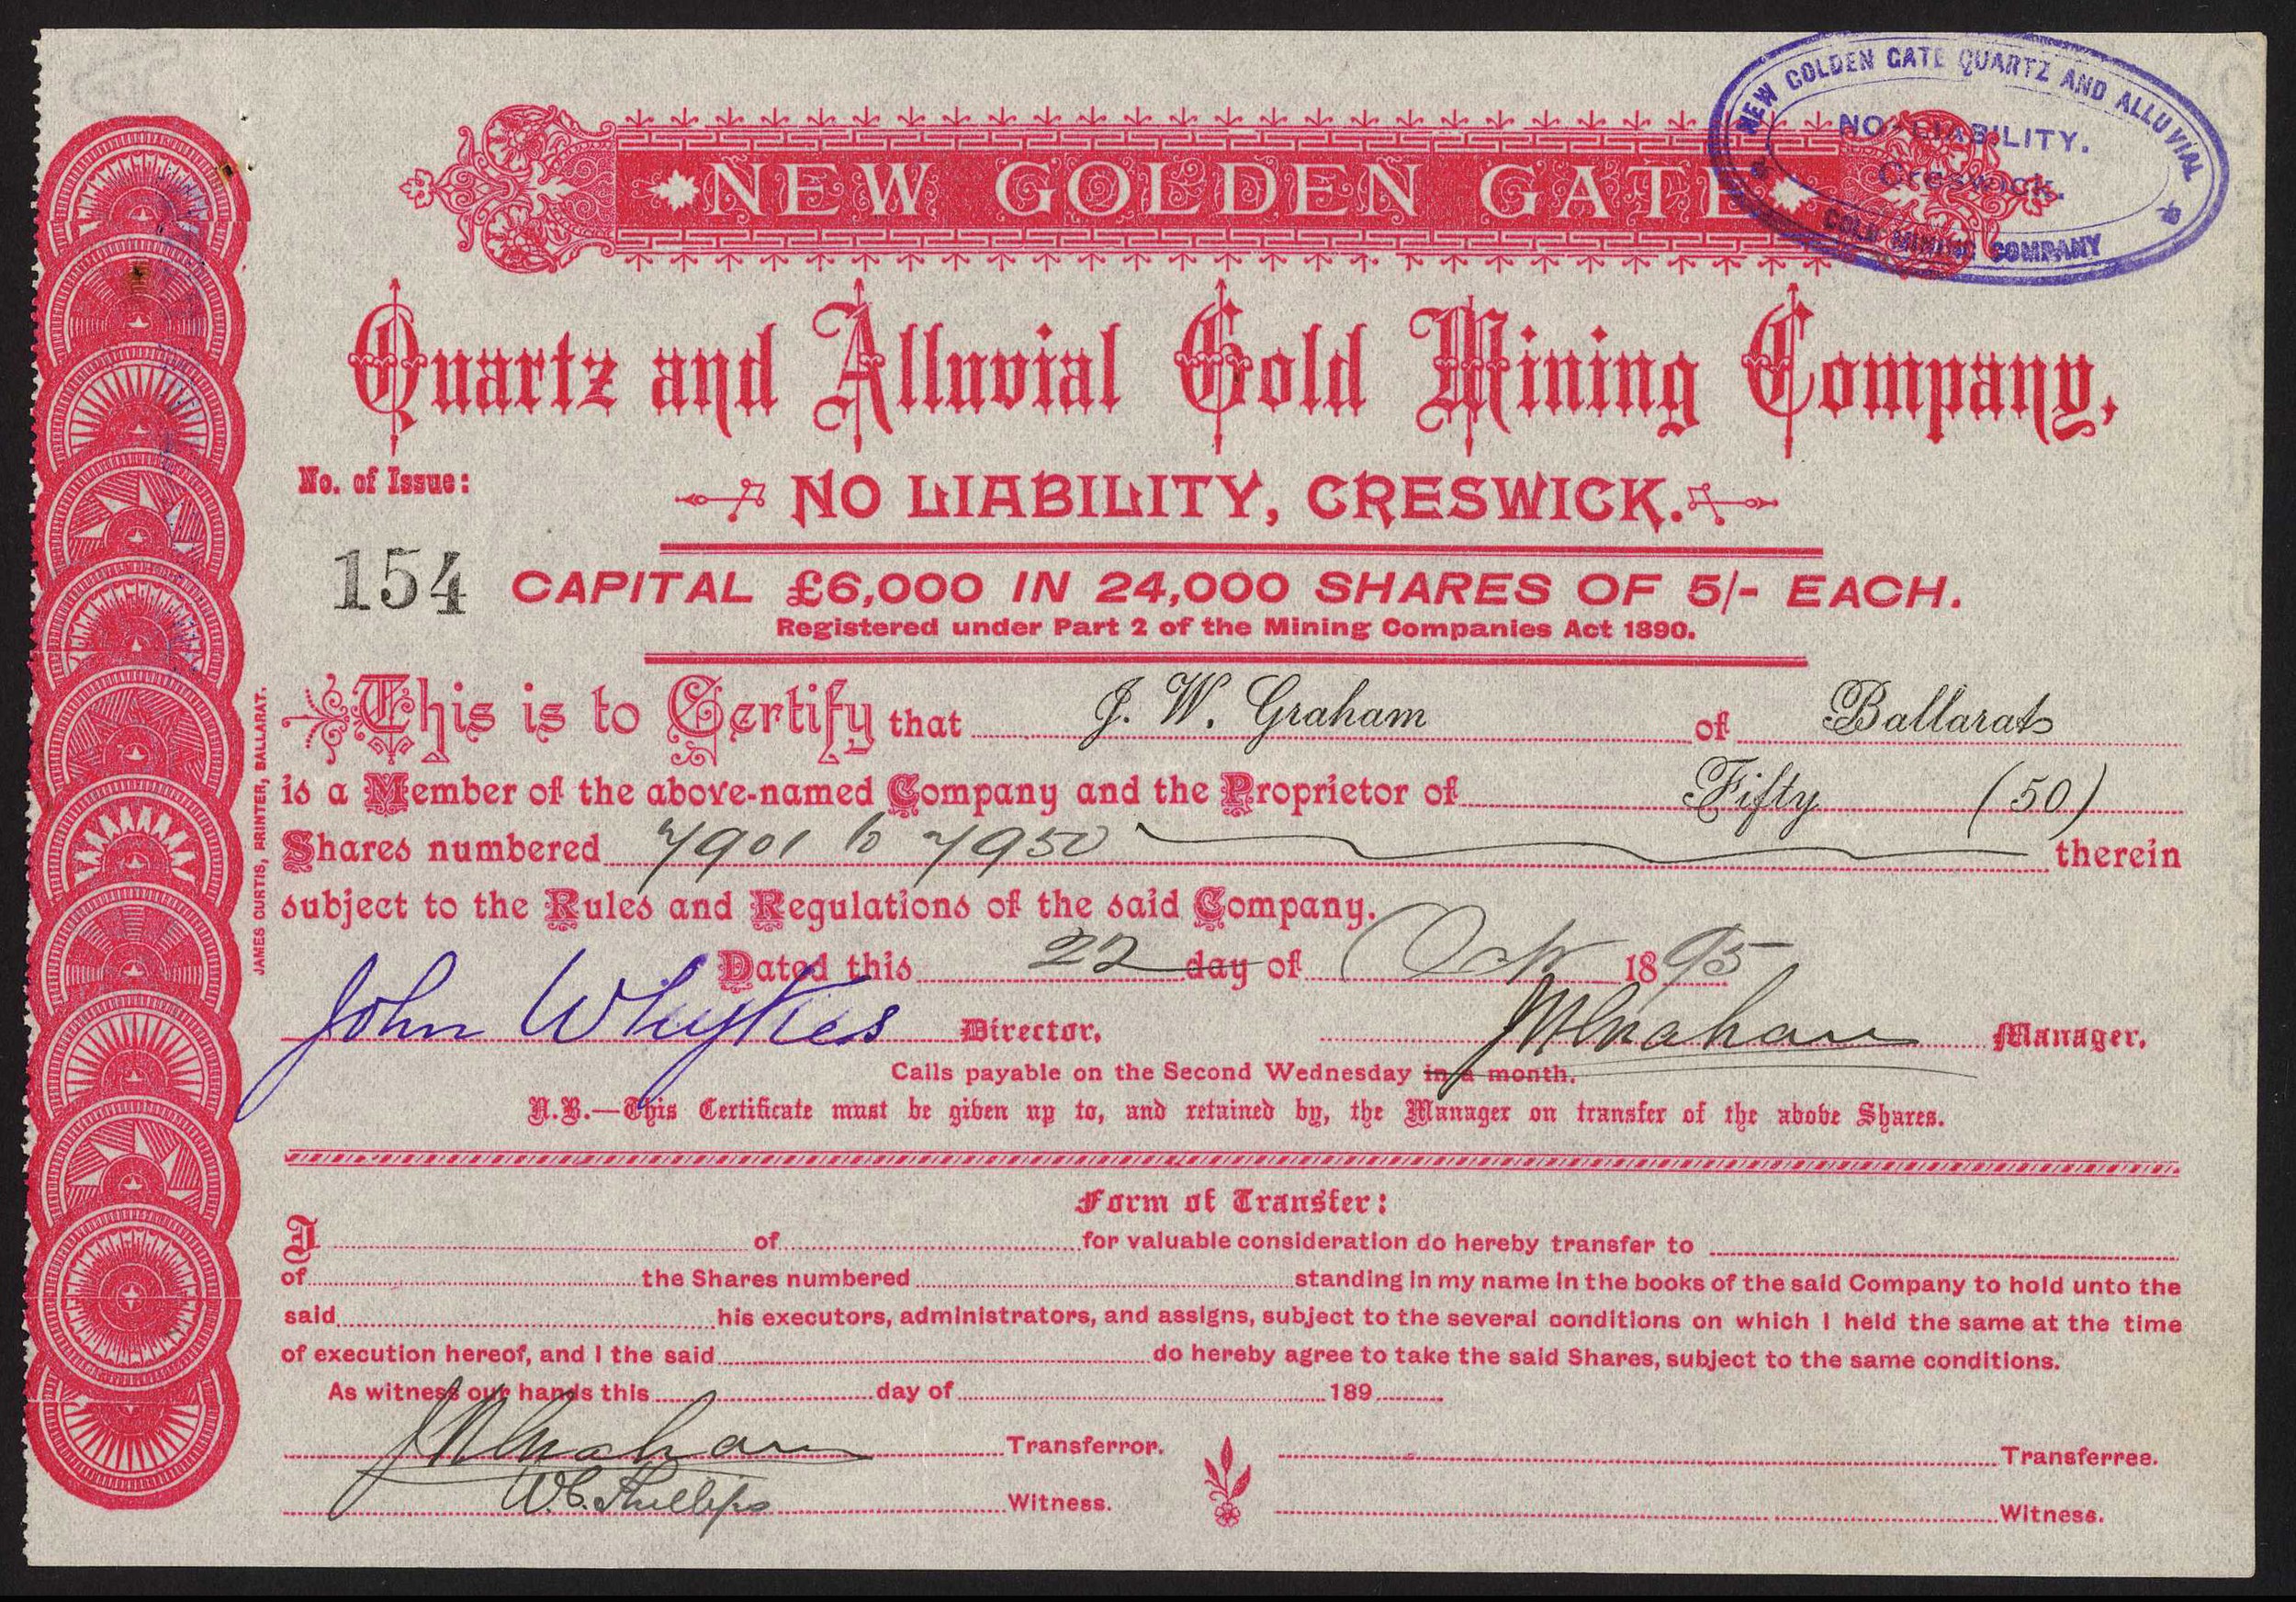 NEW GOLDEN GATE QUARTZ AND ALLUVIAL
NO-LIABILITY.
Creswick.
GOLD MINING COMPANY
NEW GOLDEN GATE
Quartz and Alluvial Gold Mining Company,
No. of Issue:
NO LIABILITY, CRESWICK.
154
CAPITAL £6,000 IN 24,000 SHARES OF 5/- EACH.
Registered under Part 2 of the Mining Companies Act 1890.
This is to Certify that J. W. Graham of Ballarat
is a Member of the above-named Company and the Proprietor of Fifty (50)
Shares numbered 7901 to 7950 therein
subject to the Rules and Regulations of the said Company.
Dated this 22 day of Oct 1895
John Whykes Director. JWGraham Manager.
Calls payable on the Second Wednesday in a month.
N.B.—This Certificate must be given up to, and retained by, the Manager on transfer of the above Shares.
JAMES CURTIS, PRINTER, BALLARAT.
Form of Transfer:
I of for valuable consideration do hereby transfer to
of the Shares numbered standing in my name in the books of the said Company to hold unto the
said his executors, administrators, and assigns, subject to the several conditions on which I held the same at the time
of execution hereof, and I the said do hereby agree to take the said Shares, subject to the same conditions.
As witness our hands this day of 189
JWGraham Transferror. Transferree.
W.C. Phillips Witness. Witness.